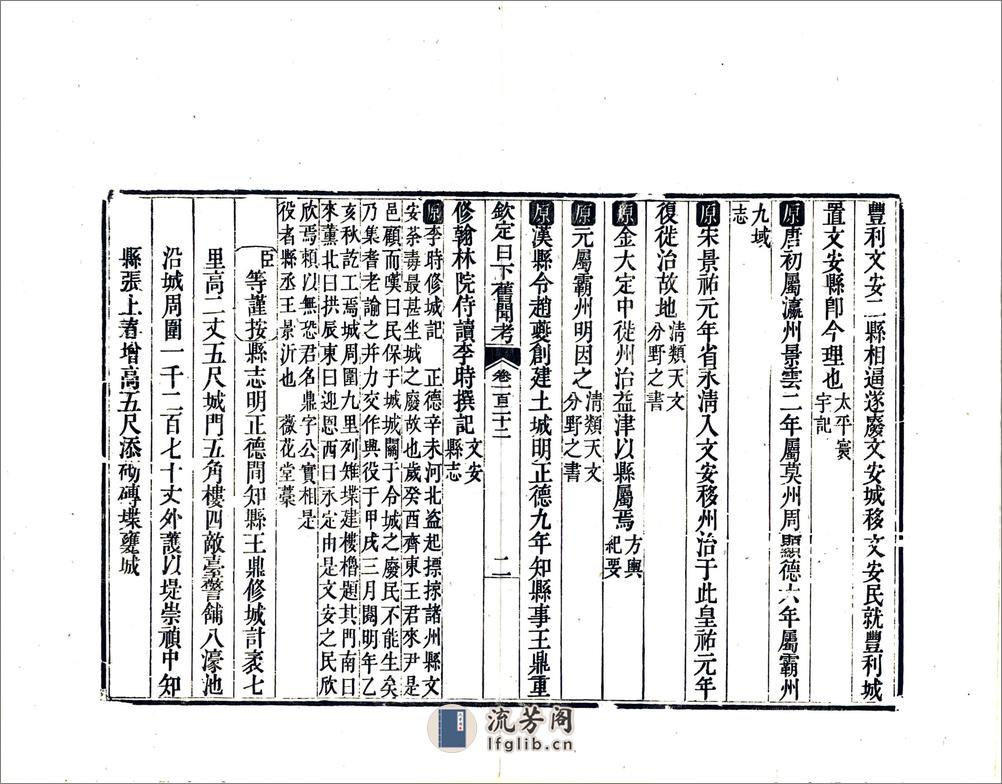 豐利文安二縣相逼遂廢文安城移文安民就豐利城
置文安縣卽今理也太平寰宇記
原唐初屬瀛州景雲二年屬莫州周顯德六年屬霸州
九域志
原宋景祐元年省永淸入文安移州治于此皇祐元年
復徙治故地淸類天文分野之書
原金大定中徙州治益津以縣屬焉方輿紀要
原元屬霸州明因之淸類天文分野之書
原漢縣令趙夔創建土城明正德九年知縣事王鼎重
欽定日下舊聞考 卷一百二十二 二
修翰林院侍讀李時撰記文安縣志
原李時修城記 正德辛未河北盜起摽掠諸州縣文
安荼毒最甚坐城之廢故也歲癸酉齊東王君來尹是
邑顧而嘆曰民保于城城關于令城之廢民不能生矣
乃集耆老諭之并力交作興役于甲戌三月閱明年乙
亥秋訖工焉城周圍九里列雉堞建樓櫓題其門南曰
來薰北曰拱辰東曰迎恩西曰永定由是文安之民欣
欣焉賴以無恐君名鼎字公實相是
役者縣丞王景沂也 薇花堂藁
臣等謹按縣志明正德間知縣王鼎修城計袤七
里高二丈五尺城門五角樓四敵臺警舖八濠池
沿城周圍一千二百七十丈外護以堤崇禎中知
縣張上着增高五尺添砌磚堞甕城
流芳阁
lfglib.cn